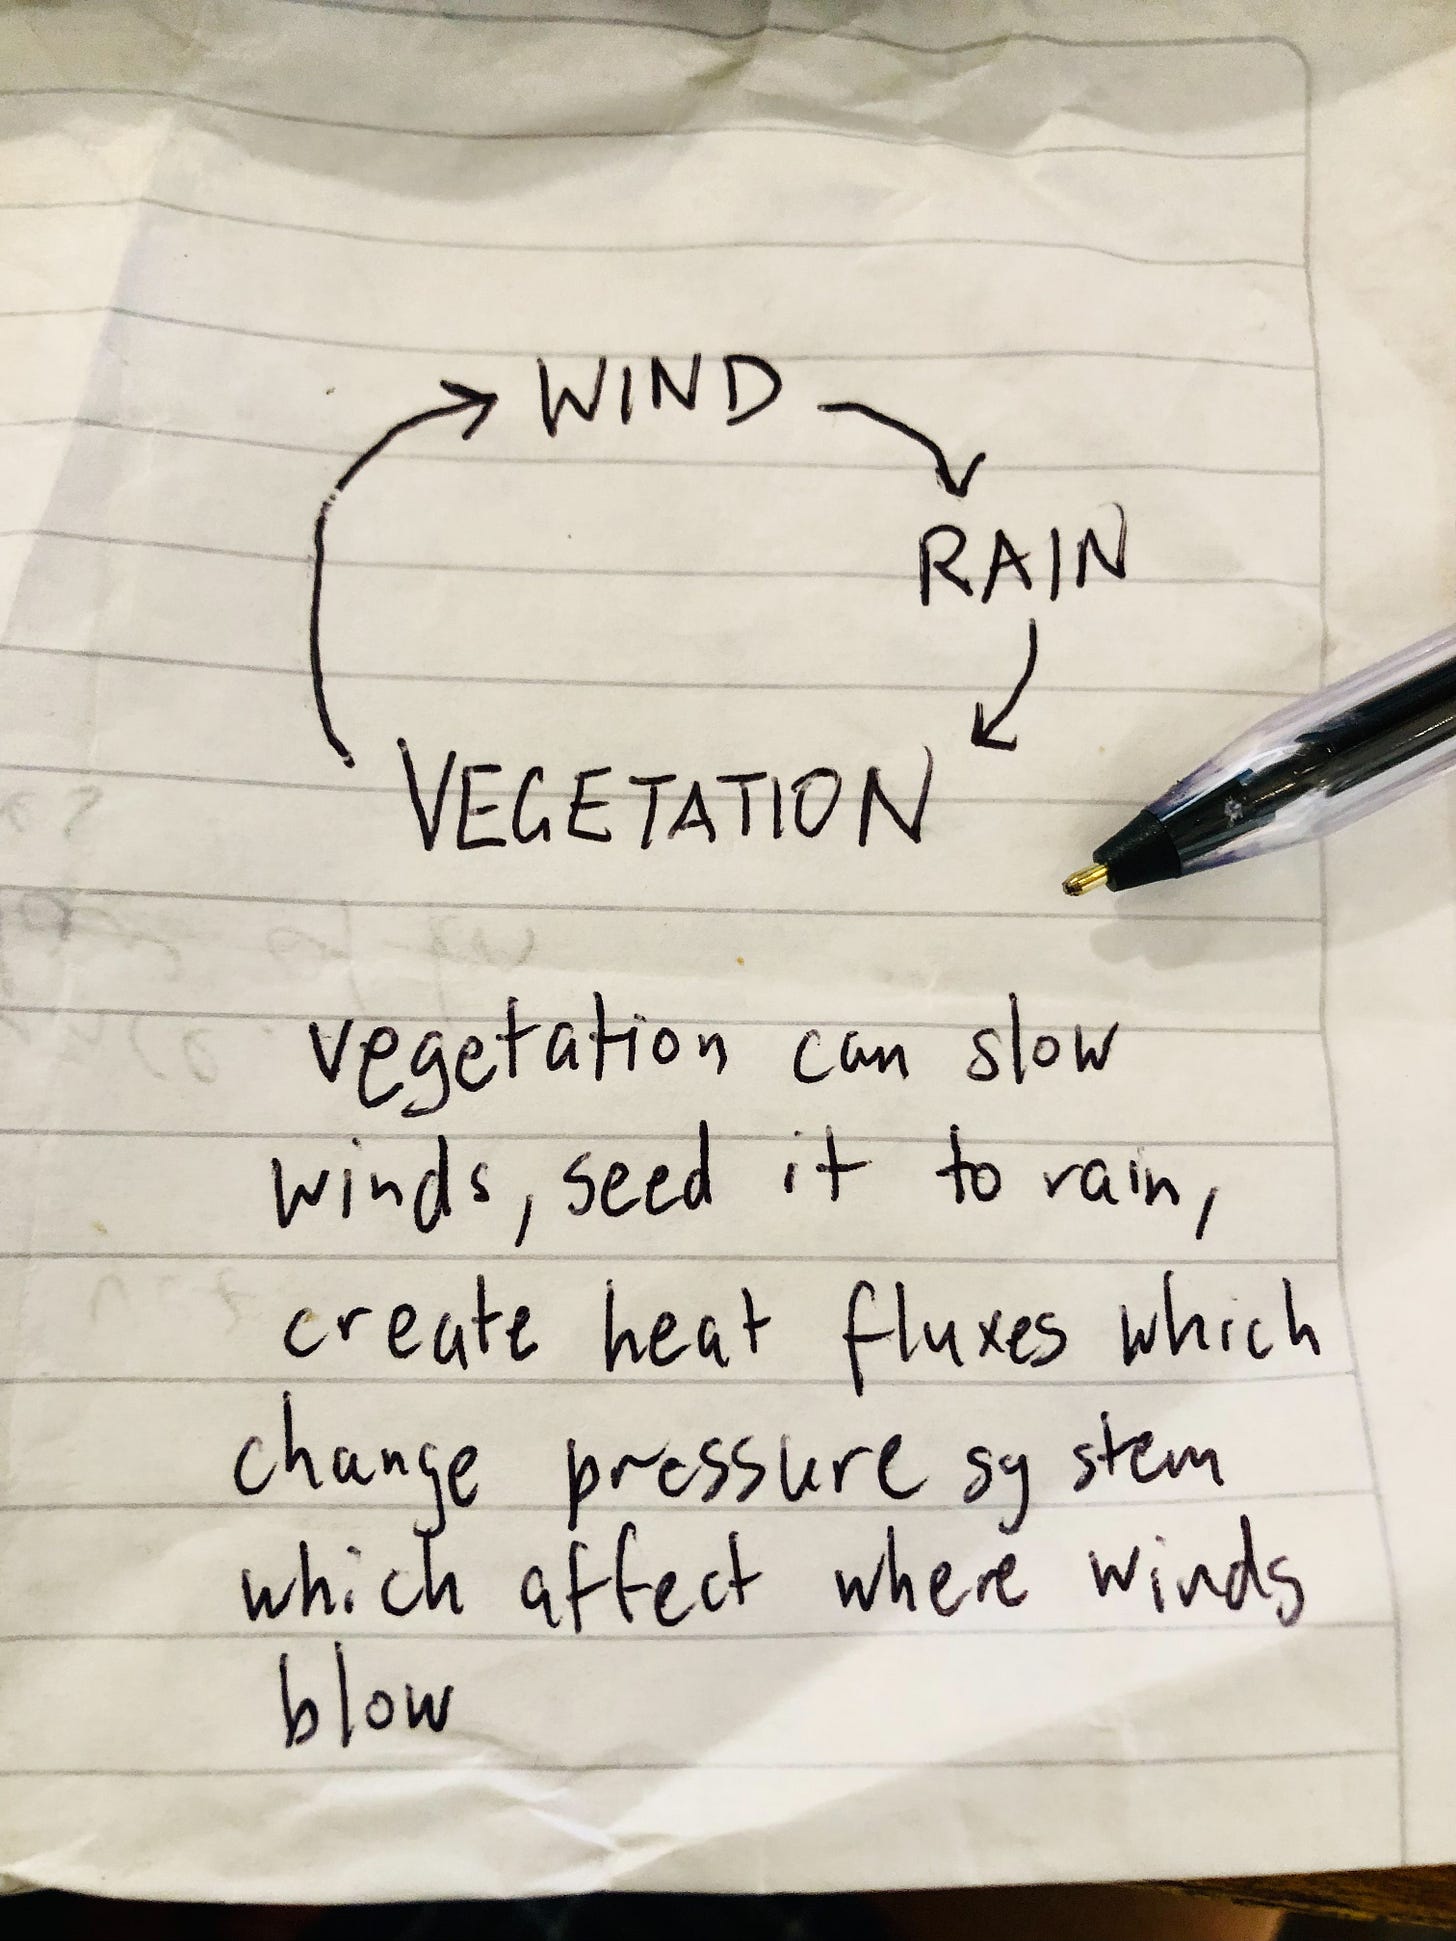 WIND
RAIN
VEGETATION
vegetation can slow
winds, seed it to rain,
create heat fluxes which
change pressure system
which affect where winds
blow